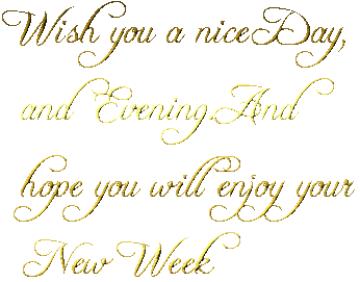 Wish you a nice Day,
and Evening.And
hope you will enjoy your
New Week